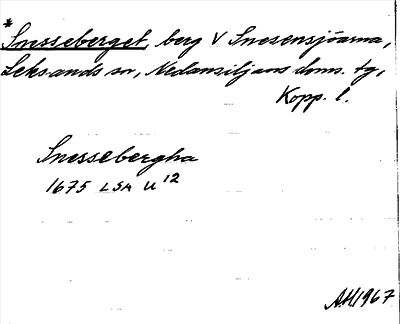 *
Snesseberget, berg V Snesensjöarna,
Leksands sn, Nedansiljans doms. tg,
Kopp. l.
Snessebergha
1675 LSA U 12
AH 1967